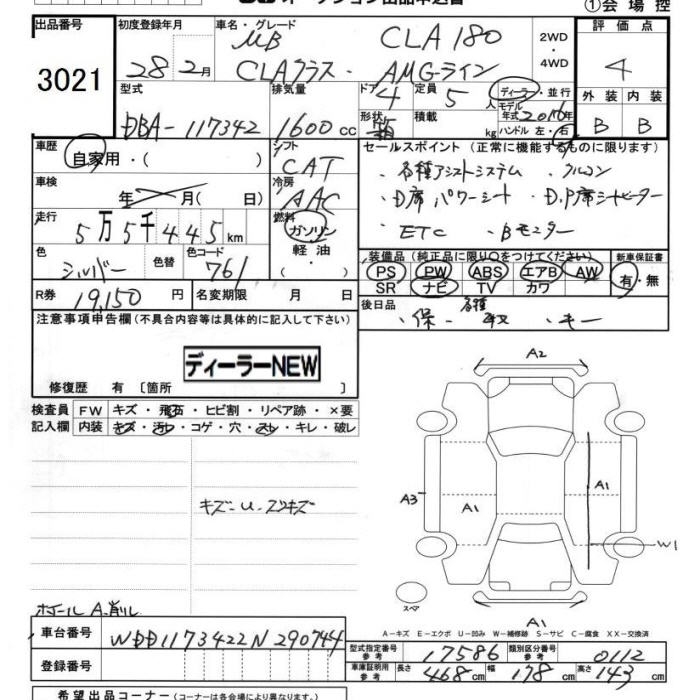 オークション出品申込書 ①会場控
出品番号 初度登録年月 車名・グレード 2WD 評価点
3021 28年2月 MB CLA180 ・4WD 4
CLAクラス・AMGライン
型式 排気量 ドア 定員 ディーラー・並行 外装 内装
DBA-117342 1600cc 4 5人 モデル年式 2016年 B B
形状 箱 積載 kg ハンドル 左・右
車歴 シフト セールスポイント (正常に機能するものに限ります)
自家用・( ) CAT ・各種アシストシステム ・クルコン
車検 冷房 ・D席パワーシート ・D.P席シートヒーター
年 月( 日) AAC ・ETC ・Bモニター
走行 燃料
5万5千445km ガソリン
軽油
色 色替 色コード 装備品(純正品に限り○をつけてください) 新車保証書
シルバー 761 PS PW ABS エアB AW 有・無
SR ナビ TV カワ
R券 19,150円 名変期限 月 日 後日品
・保 ・各種取 ・キー
注意事項申告欄(不具合内容等は具体的に記入して下さい)
ディーラーNEW
修復歴 有 [箇所 ]
検査員 FW キズ・飛石・ヒビ割・リペア跡・×要
記入欄 内装 キズ・汚レ・コゲ・穴・スレ・キレ・破レ
A2
A3 A1 A1
キズ-U-スリキズ
W1
スペア
A1
ホイール A.削ル
A-キズ E-エクボ U-凹み W-補修跡 S-サビ C-腐食 XX-交換済
車台番号 WDD1173422N290744
型式指定番号 参考 17586 類別区分番号 参考 0112
登録番号 車庫証明用 参考 長さ 468cm 幅 178cm 高さ 143cm
希望出品コーナー(コーナーは各会場により異なります。)